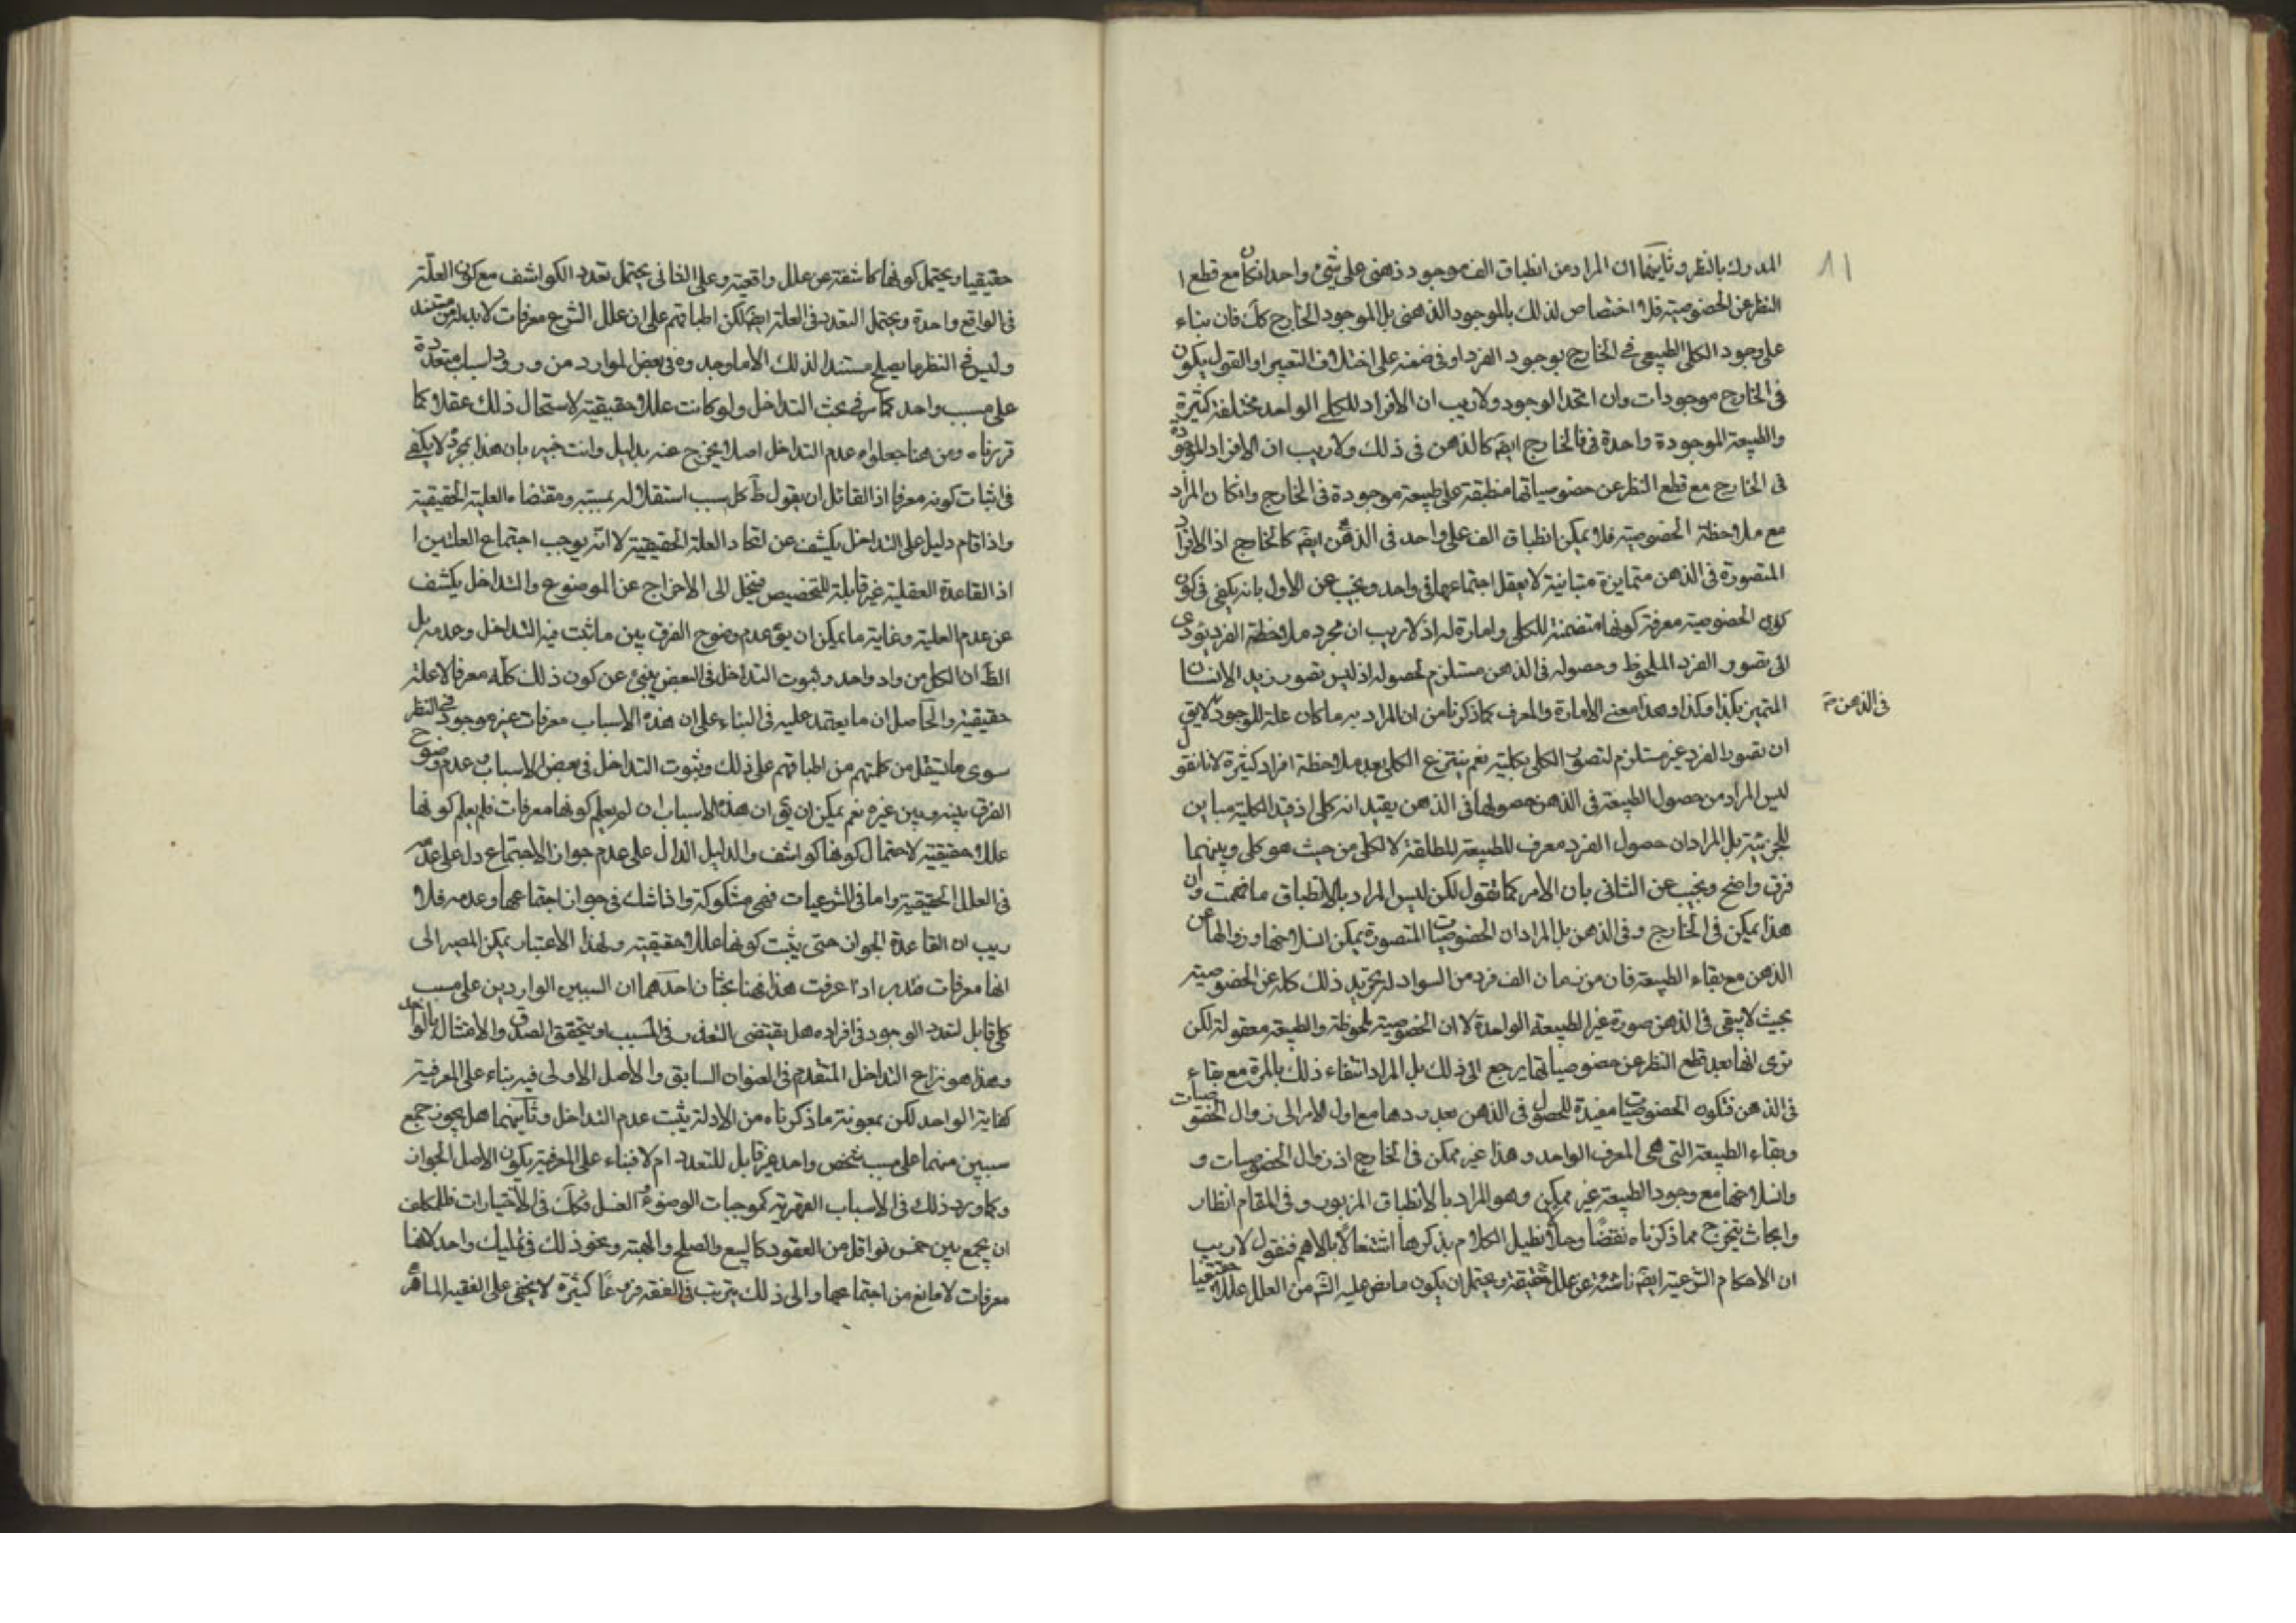 ١١
المدرك بالنظر وثانيهما ان المراد من انطباق الف موجود ذهني على شيء واحد ان كان مع قطع
النظر عن الخصوصية فلا اختصاص لذلك بالموجود الذهني بل الموجود الخارج كك فان بناء
على وجود الكلي الطبيعي في الخارج بوجود الفرد او في ضمنه على اختلاف التعبير او القول يكون
في الخارج موجودات وان اتحد الوجود ولا ريب ان الافراد للكلي الواحد مختلفة كثيرة
والطبيعة الموجودة واحدة ففي الخارج ايضا كالذهن في ذلك ولا ريب ان الافراد الموجودة
في الخارج مع قطع النظر عن خصوصياتها منطبقة على طبيعة موجودة في الخارج وان كان المراد
مع ملاحظة الخصوصية فلا يمكن انطباق الف على واحد في الذهن ايضا كالخارج اذ الافراد
المتصورة في الذهن متمايزة متباينة لا يعقل اجتماعها في واحد ونجيب عن الاول بانه يكفي في كون
كون الخصوصية معرفة كونها متضمنة للكلي وامارة له اذ لا ريب ان مجرد ملاحظة الفرد يؤدي
الى تصور الفرد الملحوظ وحصوله في الذهن مستلزم لحصوله اذ ليس تصور زيد الا الانسان
المتميز بكذا وكذا وهذا معنى الامارة والمعرف كما ذكرنا من ان المراد به ما كان علة للوجود لا يق
في الذهن
ان تصور الفرد غير مستلزم لتصور الكلي بكليته نعم ينتزع الكلي بعد ملاحظة افراد كثيرة لانا نقول
ليس المراد من حصول الطبيعة في الذهن حصولها في الذهن بقيد انه كلي اذ قيد الكلية مباين
للجزئية بل المراد ان حصول الفرد معرف للطبيعة المطلقة لا الكلي من حيث هو كلي وبينهما
فرق واضح ونجيب عن الثاني بان الامر كما تقول لكن ليس المراد بالانطباق ما فهمت وان
هذا يمكن في الخارج وفي الذهن بل المراد ان الخصوصيات المتصورة يمكن انسلاخها وزوالها عن
الذهن مع بقاء الطبيعة فان من زعمان الف فرد من السواد له تجريد ذلك كله عن الخصوصية
بحيث لا يبقى في الذهن صورة غير الطبيعة الواحدة لا ان الخصوصية ملحوظة والطبيعة معقولة لكن
نرى انها بعد قطع النظر عن خصوصياتها يرجع الى ذلك بل المراد انتفاء ذلك بالمرة مع بقاء
في الذهن فتكون الخصوصيات مفيدة للحصول في الذهن بعد ردها مع اول الامر الى زوال الخصوصيات
وبقاء الطبيعة التي هي المعرف الواحد وهذا غير ممكن في الخارج اذ زوال الخصوصيات و
وانسلاخها مع وجود الطبيعة غير ممكن وهو المراد بالانطباق المزبور وفي المقام انظار
وابحاث يتخرج مما ذكرناه نقضا وحلا نطيل الكلام بذكرها اشتغالا بالاهم فنقول لا ريب
ان الاحكام الشرعية ايضا ناشئة عن علل حقيقة ويحتمل ان يكون ما نص عليه الش من العلل عللا حقيقيا
حقيقيا ويحتمل كونها كاشفة عن علل واقعية وعلى الثاني يحتمل تعدد الكواشف مع كون العلة
في الواقع واحدة ويحتمل التعدد في العلة ايضا لكن اطباقهم على ان علل الشرع معرفات لا بد له من مستند
وليس في النظر ما يصلح مستندا لذلك الا ما وجدوه في بعض الموارد من ورود اسباب متعددة
على مسبب واحد كما مر في بحث التداخل ولو كانت عللا حقيقية لاستحال ذلك عقلا كما
قررناه ومن هنا جعلوا عدم التداخل اصلا يخرج عنه بدليل وانت خبير بان هذا بمجرده لا يكفي
في اثبات كونه معرفا اذ القائل ان يقول ظ كل سبب استقلاله بمسببه ومقتضاه العلية الحقيقية
واذا قام دليل على التداخل يكشف عن اتحاد العلة الحقيقية لا انه يوجب اجتماع العلتين
اذ القاعدة العقلية غير قابلة للتخصيص فينحل الى الاخراج عن الموضوع والتداخل يكشف
عن عدم العلية وغاية ما يمكن ان يق عدم وضوح الفرق بين ما ثبت فيه التداخل وعدمه بل
الظ ان الكل من واد واحد وثبوت التداخل في البعض ينبئ عن كون ذلك كله معرفا لا علة
حقيقية والحاصل ان ما يعتمد عليه في البناء على ان هذه الاسباب معرفات غير موجود في النظر
سوى ما ينقل من كلمتهم من اطباقهم على ذلك وثبوت التداخل في بعض الاسباب وعدم وضوح
الفرق بينه وبين غيره نعم يمكن ان يق ان هذه الاسباب ان لم يعلم كونها معرفات فلم يعلم كونها
عللا حقيقية لاحتمال كونها كواشف والدليل الدال على عدم جواز الاجتماع دل على عدمه
في العلل الحقيقية واما في الشرعيات فهي مشكوكة واذا شك في جواز اجتماعها وعدمه فلا
ريب ان القاعدة الجواز حتى يثبت كونها عللا حقيقية وبهذا الاعتبار يمكن المصير الى
انها معرفات فتدبر اذا عرفت هذا فهنا بحثان احدهما ان السببين الواردين على مسبب
كلي قابل لتعدد الوجود في افراده هل يقتضي التعدد في المسبب او يتحقق الصدق والامتثال بالواحد
وهذا هو نزاع التداخل المتقدم في العنوان السابق والاصل الاولى فيه بناء على المعرفية
كفاية الواحد لكن بمعونة ما ذكرناه من الادلة يثبت عدم التداخل وثانيهما هل يجوز جمع
سببين منهما على مسبب شخص واحد غير قابل للتعدد ام لا فبناء على المعرفية يكون الاصل الجواز
وكما ورد ذلك في الاسباب القهرية كموجبات الوضوء والغسل فكك في الاختيارات فللمكلف
ان يجمع بين خمس نواقل من العقود كالبيع والصلح والهبة ونحو ذلك في تمليك واحد لانها
معرفات لا مانع من اجتماعها والى ذلك يترتب في الفقه فروعا كثيرة لا يخفى على الفقيه الماهر